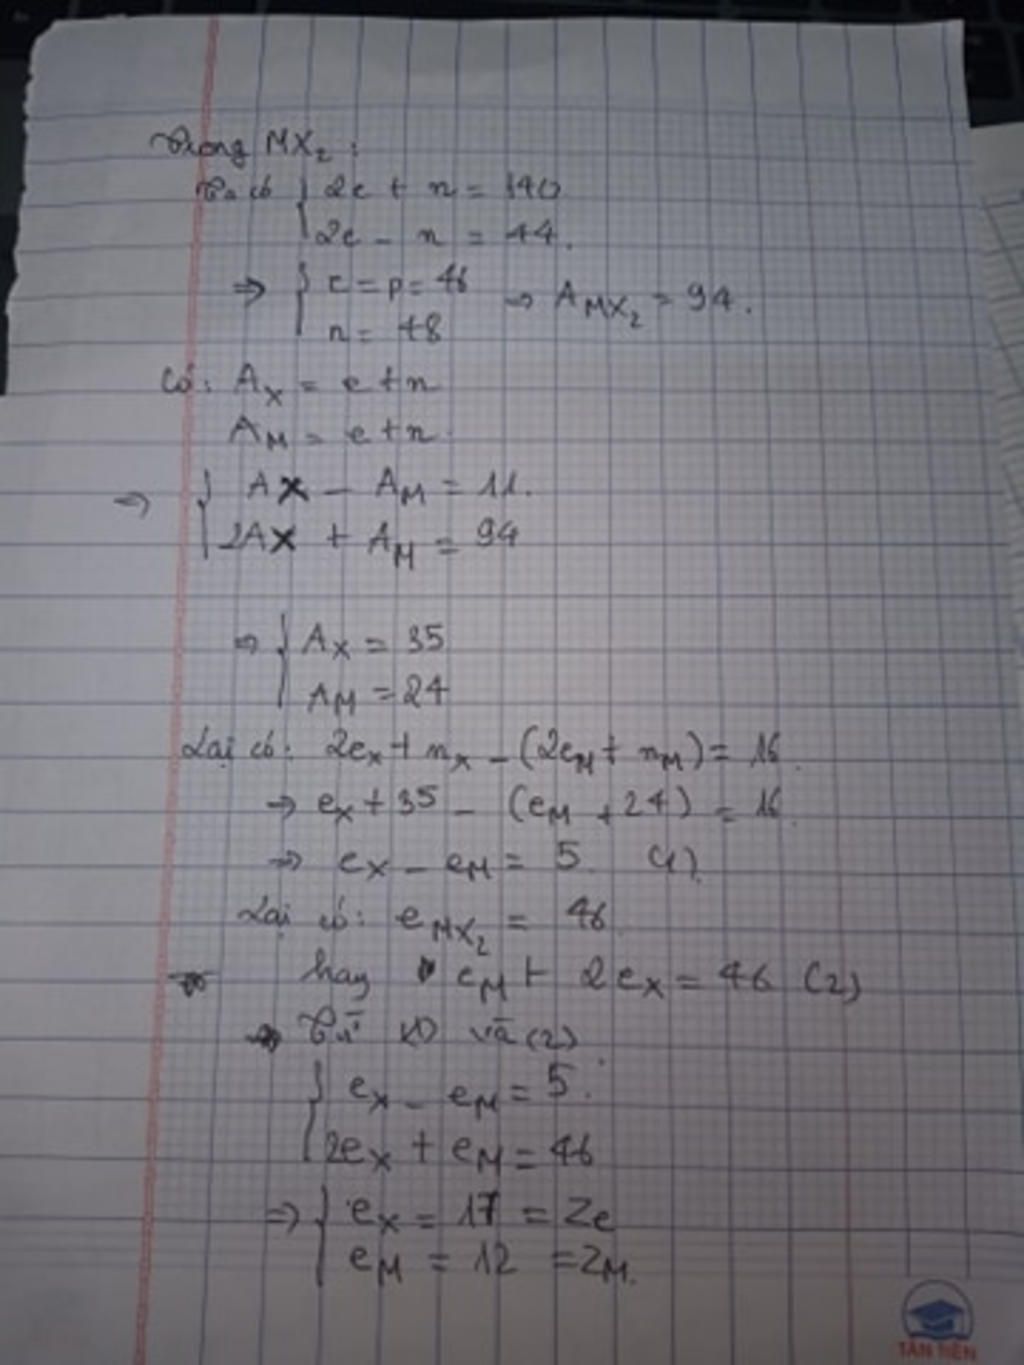 Trong MX₂ :
Ta có { 2e + n = 140
2e - n = 44.
⇒ { e = p = 46 → A_MX₂ = 94.
n = 48
Có : A_X = e + n
A_M = e + n.
⇒ { AX - A_M = 11.
2AX + A_M = 94
⇒ { A_X = 35
A_M = 24
Lại có: 2e_X + n_X - (2e_M + n_M) = 16.
→ e_X + 35 - (e_M + 24) = 16.
→ e_X - e_M = 5. (1).
Lại có: e_MX₂ = 46.
hay e_M + 2e_X = 46 (2)
Từ (1) và (2).
{ e_X - e_M = 5.
2e_X + e_M = 46
⇒ { e_X = 17 = Ze
e_M = 12 = Z_M.
TÂN TIẾN